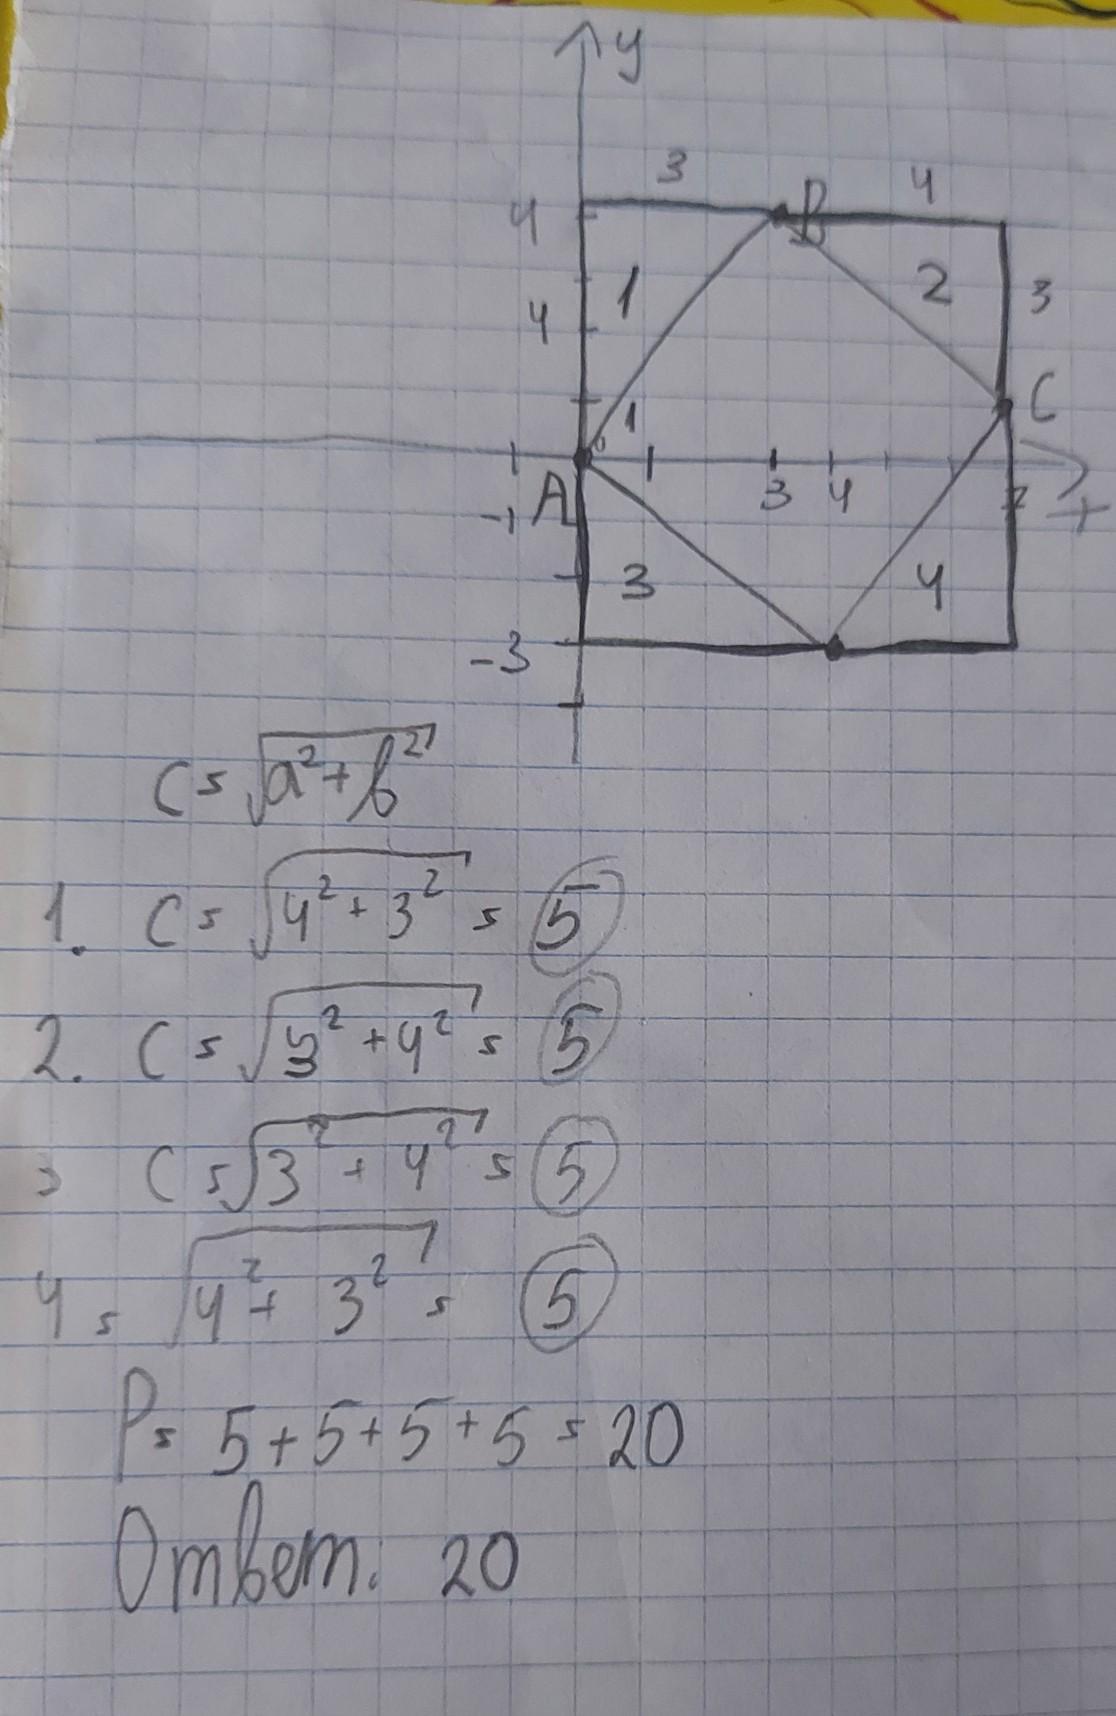 y
3 4
4 B
1 2 3
4
1 C
A 3 4 7 x
-1
3 4
-3
c = √a²+b²
1. c = √4²+3² = 5
2. c = √3²+4² = 5
3 c = √3²+4² = 5
4 = √4²+3² = 5
P = 5+5+5+5 = 20
Ответ: 20